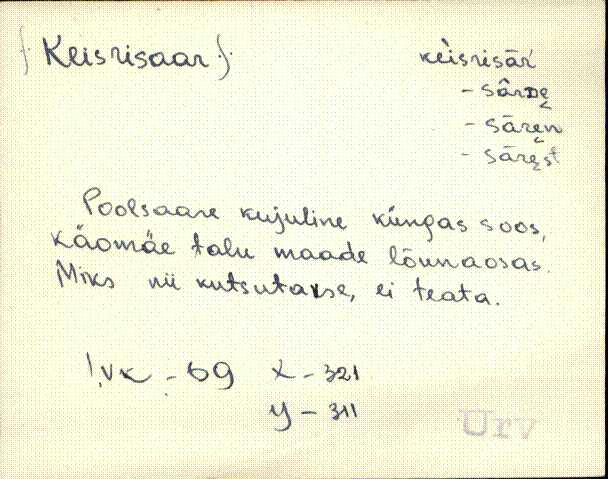 {Keisrisaar}
kèisrisār
- sārDe̬
- sāre̬n
- sāre̬st
Poolsaare kujuline küngas soos,
Käomäe talu maade lõunaosas.
Miks nii kutsutakse, ei teata.
! VK - 69 x - 321
y - 311
Urv